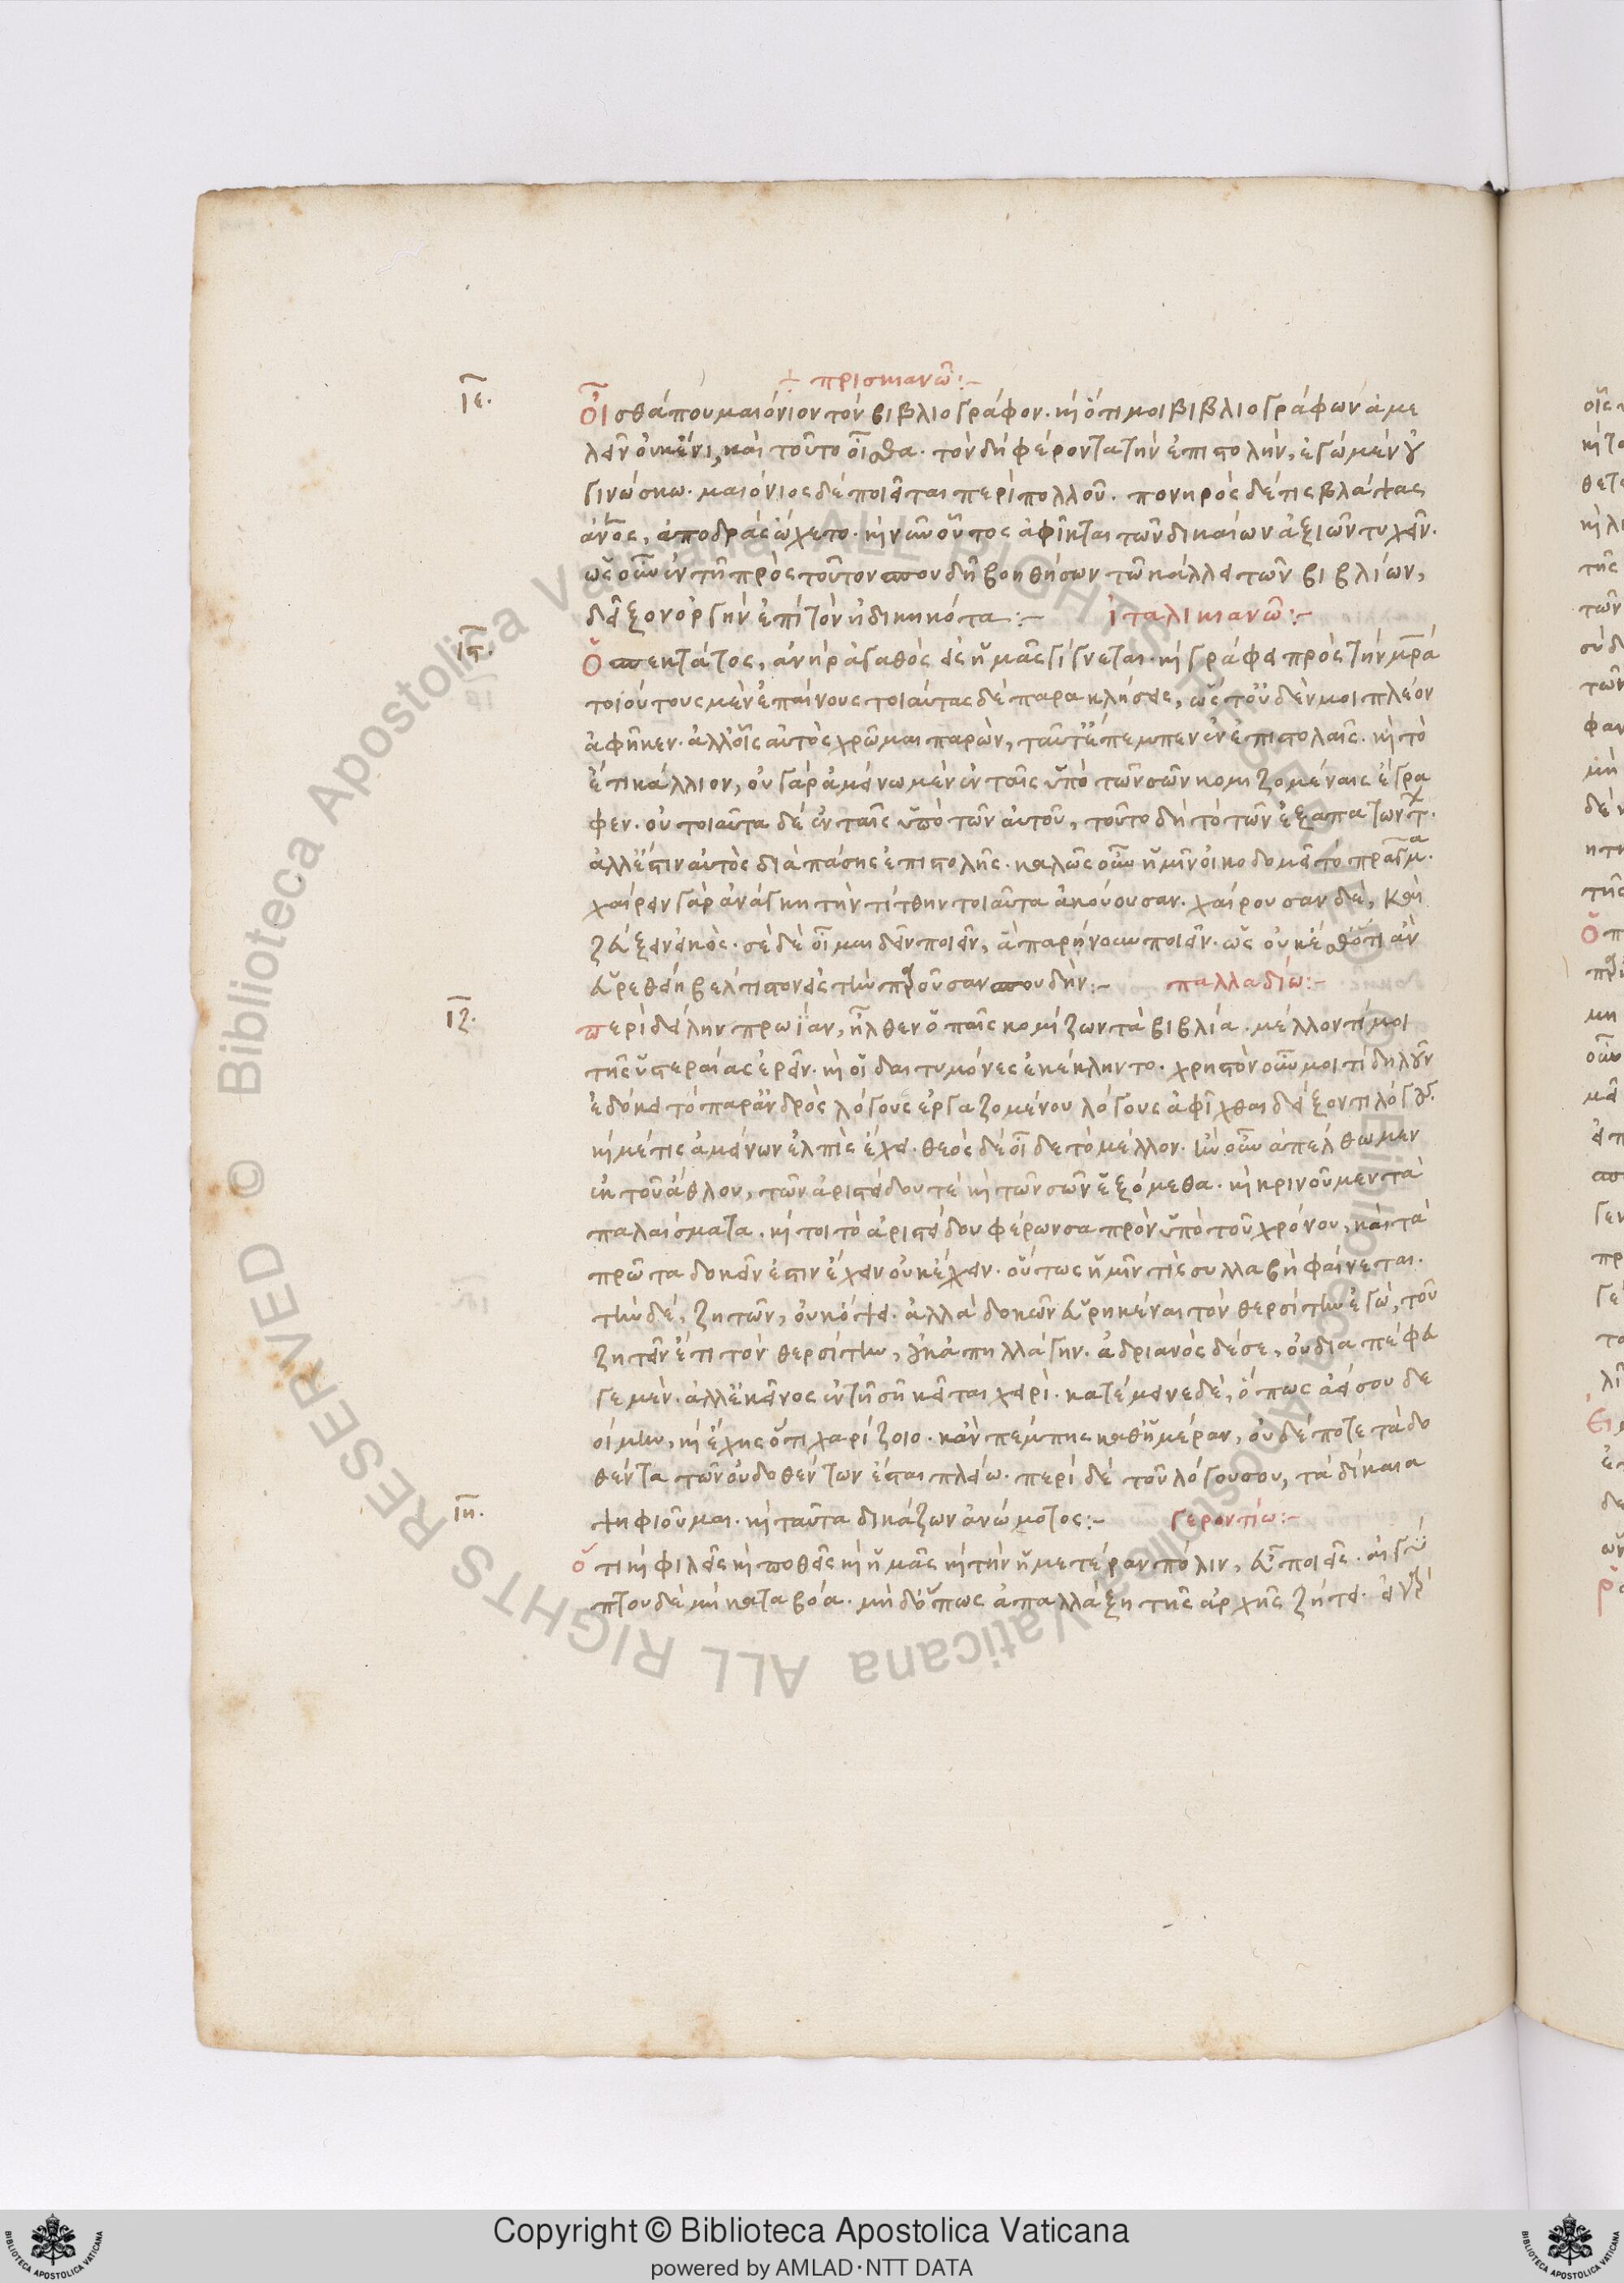 + πρισκιανῶ:-
ιε. Οἶσθά που μαιόνιον τὸν βιβλιογράφον. κ ὅτι μοι βιβλιογράφων ἀμε
λεῖν οὐκ ἔνι, καὶ τοῦτο οἶσθα. τὸν δὴ φέροντα τὴν ἐπιστολὴν, ἐγὼ μὲν οὐ
γινώσκω. μαιόνιος δὲ ποιεῖται περὶ πολλοῦ. πονηρὸς δέ τις βλάψας
ἀνος, ἀποδρὰς ὤχετο. κ νῦν οὗτος ἀφῖκται τῶν δικαίων ἀξιῶν τυχεῖν.
ὡς οὖν ἐν τῇ πρὸς τοῦτον σπουδῇ βοηθήσων τῶ κάλλει τῶν βιβλίων,
δεῖξον ὀργὴν ἐπὶ τὸν ἠδικηκότα:- ἰταλικιανῶ:-
ις. Ὁ σπεκτάτος, ἀνὴρ ἀγαθὸς εἰς ἡμᾶς γίγνεται. κ γράφει πρὸς τὴν μρα
τοιούτους μὲν ἐπαίνους τοιαύτας δὲ παρακλήσεις, ὥς τ' οὐδέν μοι πλέον
ἀφῆκεν. ἀλλ' οἷς αὐτὸς χρῶμαι παρὼν, ταῦτ' ἔπεμπεν ἐν ἐπιστολαῖς. κ τὸ
ἔτι κάλλιον, οὐ γὰρ ἀμείνω μὲν ἐν ταῖς ὑπὸ τῶν σῶν κομιζομέναις ἔγρα
φεν. οὐ τοιαῦτα δὲ ἐν ταῖς ὑπὸ τῶν αὐτοῦ, τοῦτο δὴ τὸ τῶν ἐξαπατώντ.
ἀλλ' ἔστιν αὐτὸς διὰ πάσης ἐπιστολῆς. καλῶς οὖν ἡμῖν οἰκοδομεῖ τὸ πρᾶγμα.
χαίρειν γὰρ ἀνάγκη τὴν τίτθην τοιαῦτα ἀκούουσαν. χαίρουσαν δὲ, καὶ
ζεύξειν εἰκὸς. σὲ δὲ οἶμαι δεῖν ποιεῖν, ἃ παρῄνουν ποιεῖν. ὡς οὐκ ἔσθ' ὅτι ἂν
εὑρεθείη βέλτιστον εἰς τὴν προῦσαν σπουδήν:- παλλαδίω:-
ιζ. περὶ δείλην πρωΐαν, ἦλθεν ὁ παῖς κομίζων τὰ βιβλία. μέλλοντί μοι
τῆς ὑστεραίας ἐρεῖν. κ οἱ δαιτυμόνες ἐκέκληντο. χρηστὸν οὖν μοι τὶ δηλοῦν
ἐδόκει τὸ παρ' ἀνδρὸς λόγους ἐργαζομένου λόγους ἀφῖχθαι δείξοντι λόγους.
κ μέ τις ἀμείνων ἐλπὶς ἔχει. θεὸς δὲ οἶδε τὸ μέλλον. ἢν οὖν ἀπέλθωμεν
ἐκ τοῦ ἄθλου, τῶν ἀριστείδου τὲ κ τῶν σῶν ἑξόμεθα. κ κρινοῦμεν τὰ
παλαίσματα. κ τοι τὸ ἀριστείδου φέρων σαπρὸν ὑπὸ τοῦ χρόνου, καὶ τὰ
πρῶτα δοκεῖν ἔστιν ἔχειν οὐκ ἔχειν. οὕτως ἡμῖν τὶς συλλαβὴ φαίνεται.
τὴν δὲ, ζητῶν, οὐκ ὄψει. ἀλλὰ δοκῶν εὑρηκέναι τὸν θερσίτην ἐγὼ, τοῦ
ζητεῖν ἔτι τὸν θερσίτην, οὐκ ἀπηλλάγην. ἀδριανὸς δέ σε, οὐ διαπέφευ
γε μέν. ἀλλ' ἐκεῖνος ἐν τῇ σῇ κεῖται χειρὶ. κατέμεινε δὲ, ὅπως ἀεὶ σου δε
οίμην, κ ἔχῃς ὅτι χαρίζοιο. κἂν πέμπῃς καθ' ἡμέραν, οὐδέποτε τὰ δο
θέντα τῶν οὐ δοθέντων ἔσται πλείω. περὶ δὲ τοῦ λόγου σου, τὰ δίκαια
ψηφιοῦμαι. κ ταῦτα δικάζων ἀνώμοτος:- γεροντίω:-
ιη. ὅτι κ φιλεῖς κ ποθεῖς κ ἡμᾶς κ τὴν ἡμετέραν πόλιν, εὖ ποιεῖς. αἰγύ
πτου δὲ μὴ καταβόα. μὴ δ' ὅπως ἀπαλλάξῃ τῆς ἀρχῆς ζήτει.